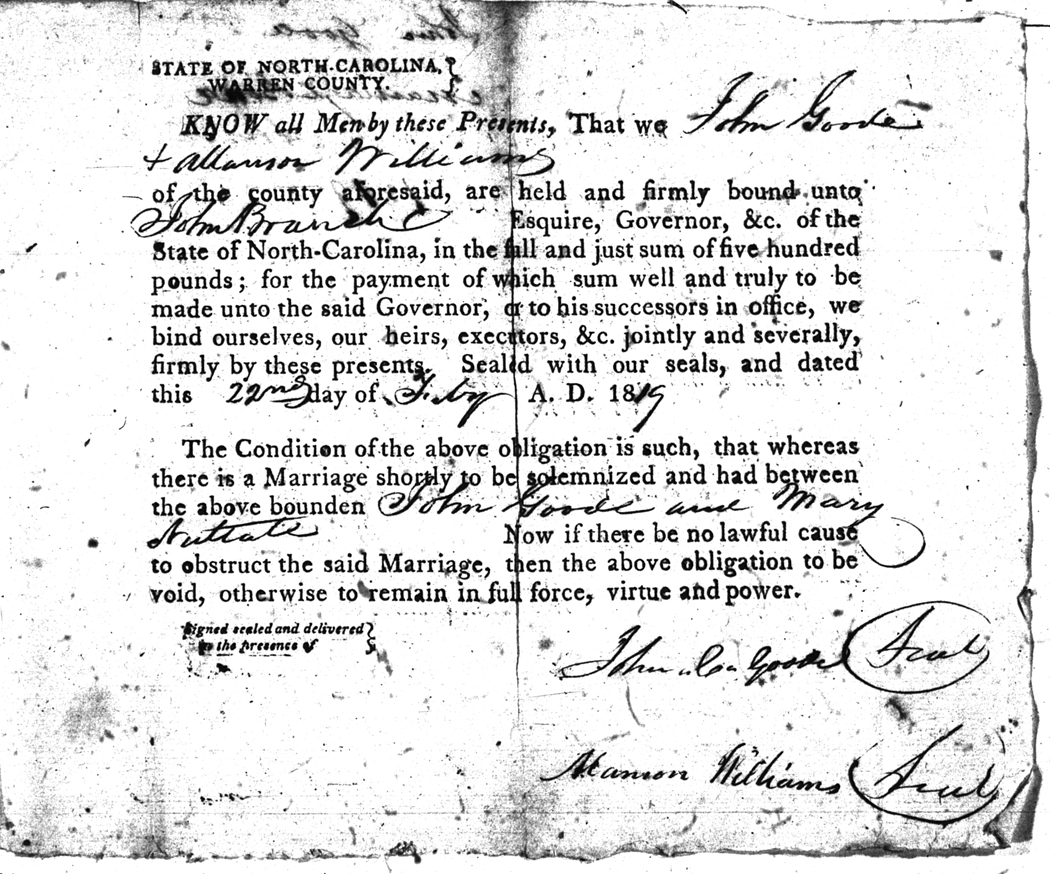 STATE OF NORTH-CAROLINA, }
WARREN COUNTY. }
KNOW all Men by these Presents, That we John Goode
+ Allanson Williams
of the county aforesaid, are held and firmly bound unto
John Branch Esquire, Governor, &c. of the
State of North-Carolina, in the full and just sum of five hundred
pounds; for the payment of which sum well and truly to be
made unto the said Governor, or to his successors in office, we
bind ourselves, our heirs, executors, &c. jointly and severally,
firmly by these presents. Sealed with our seals, and dated
this 22nd day of Feby A. D. 1819
The Condition of the above obligation is such, that whereas
there is a Marriage shortly to be solemnized and had between
the above bounden John Goode and Mary
Nuttale Now if there be no lawful cause
to obstruct the said Marriage, then the above obligation to be
void, otherwise to remain in full force, virtue and power.
Signed sealed and delivered }
in the presence of }
John Goode Seal
Allanson Williams Seal